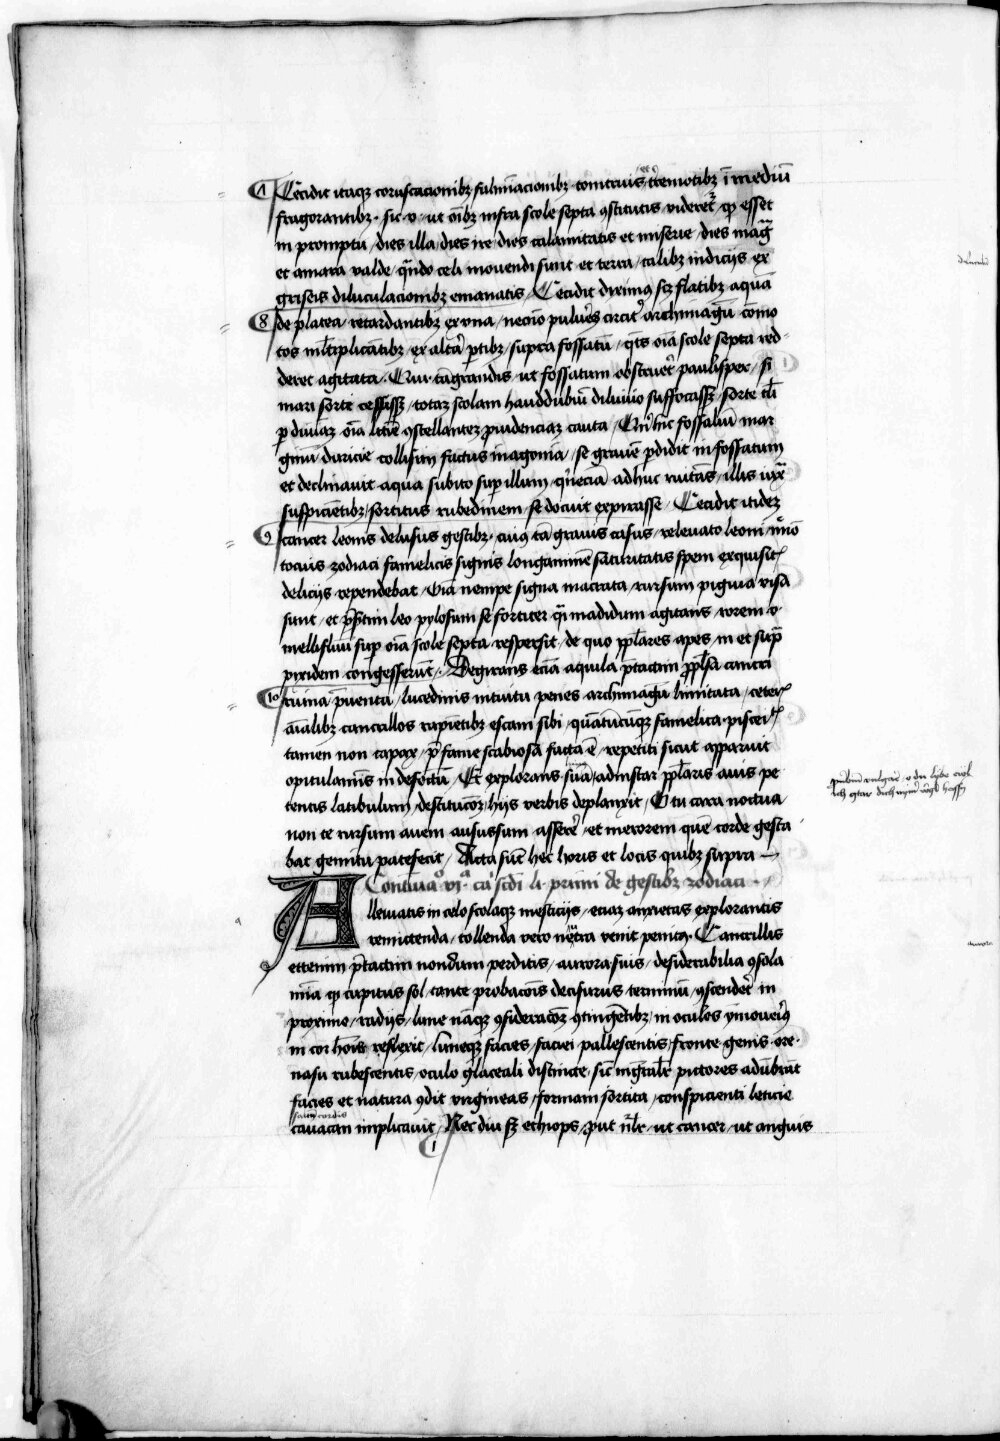 Cecidit itaqz coruscacionibz fulmīacionibz tonitruis et t̄remotibz ī mediū
fragorantibz · sic · v · ut oībz infra scole septa ꝯstitutis videret̄ / qp esset
in promptu / dies illa / dies ire / dies calamitatis et miserie / dies maḡ
et amara valde / qn̄do celi movendi sunt et terra / talibz indicijs ex
griseis diluculacionibz emanatis / Cecidit diximꝰ sꝫ flatibz aquā
8 de platea / retardantibz ex vna / necnō pulūes circit̄ archimagū cōmo
tos ml̄tiplicātibz / ex altā ꝑtibz / supra fossatū / qt̄s oīa scole septa red-
deret agitata · Cui · tā grandis / ut fossatum obstruet̄ paulisper / si
mari sorte cessissz / totaz scolam hauddubiū diluuio suffocassz / sorte tl̄i
ꝑ divinaz oīa ꝯstellantez ꝓvidenciaz cauta / fossatū mar
ginū duricie collisum factus in agonia / se grauē ꝑdidit in fossatum
et declinauit aqua subito suꝑ illum / adhuc ruitās / illis iuxᵃ
suspiciētibz / sortitus rubedinem / se docuit expirasse / Cecidit itidez
9 cancer leonis delusus gestibz · cuiꝰ tā grauis casus / releuato leoni /
tocius zodiaci famelicis signis longaminē saturitatis spem exquisit
delicijs rependebat / Oīa nempe signa macrata / rursum pigwia visa
sunt / et p̄sertim leo pylosum se fortiter qi madidum agitans / rorem v
mellifluū suꝑ oīa scole septa respersit / de quo ppl̄ares apes / in et supᵃ
pixidem congesserūt · Degirans eciā aquila p̄tactim cancri
10 ruina p̄uenta / lucedinis intuitu penes archimagū limitata / ceter
aīalibz cancrillos rapiētibz escam sibi / quātūcūqz famelica · piscei
tamen non capax / p̄ fame scabiosa facta ē / repetiti sicut apparuit
opitulaminis in defectū / Et explorans suā adinstar ppl̄aris auis pe
tentis latibulum / destitucōz / hijs verbis deplanxit / O tu cara noctua
non te rursum auem ausussum asserē / et merorem quē corde gesta
bat gemitu patefecit / Acta sūt hec horis et locis quibz supra —
Contīuaᵒ vjᵃ caⁱ scd̄i li · primi de gestibz zodiaci ·
Alleuiatis in celo scolaqz mesticijs / eciaz anxietas explorantis
remittenda / tollenda vero venit penitꝰ · Cancrillis
ettenim p̄tactim nondum perditis / aurora suis / desiderabilia ꝯsola
mīa qp cupitus sol / tante probacōis decisurus terminū / ꝯscendet̄ in
proximo / radijs / lune nāqz ꝯsideracōz ꝯtingētibz / in oculos ymouerꝰ
in cor hoīs reflexit / luneqz facies / faciei pallescentis / fronte genis ore ·
nasu rubescentis / oculo glaceali distincte / sic̄ pictores adūbrāt
facies et natura ꝯdit virgineas / formam sortita / conspicienti leticie
cauacan implicauit / Nec diu sꝫ ethiops / ꝓut / ut cancer / ut anguis
1